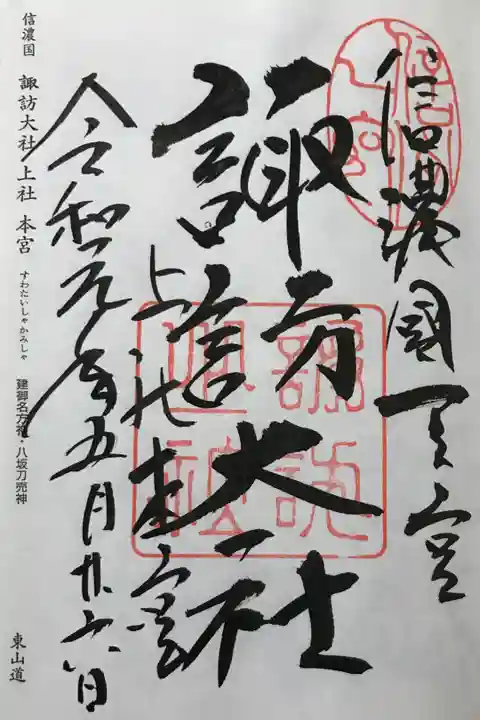 信濃國一之宮
諏訪大社
上社本宮
令和元年五月廿六日
信濃国 諏訪大社 上社 本宮 すわたいしゃかみしゃ 建御名方神・八坂刀売神 東山道
諏訪
大社